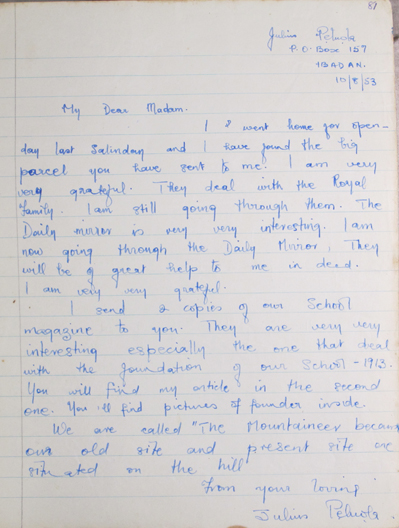 87
Julius Peluola
P.O. Box 157
IBADAN.
10/8/53
My Dear Madam.
I went home for open-
day last Saturday and I have found the big
parcel you have sent to me. I am very
very grateful. They deal with the Royal
Family. I am still going through them. The
Daily mirror is very very interesting. I am
now going through the Daily Mirror, They
will be of great help to me in deed.
I am very very grateful.
I send 2 copies of our School
magazine to you. They are very very
interesting especially the one that deal
with the foundation of our School - 1913.
You will find my article in the second
one. You 'll find pictures of founder inside.
We are called "The Mountaineer because
our old site and present site are
situated on the hill
From your loving
Julius Peluola.